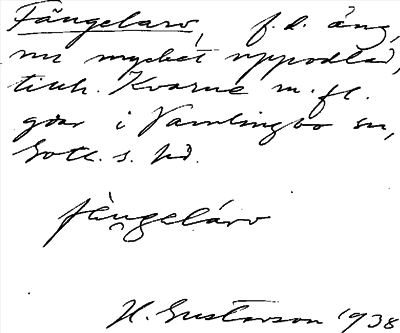 Fängelarv, f.d. äng,
nu mycket uppodlad,
tillh. Kvarne m.fl.
gdar i Vamlingbo sn,
Gotl. s. hd.
fęŋgelárv
H. Gustavson 1938